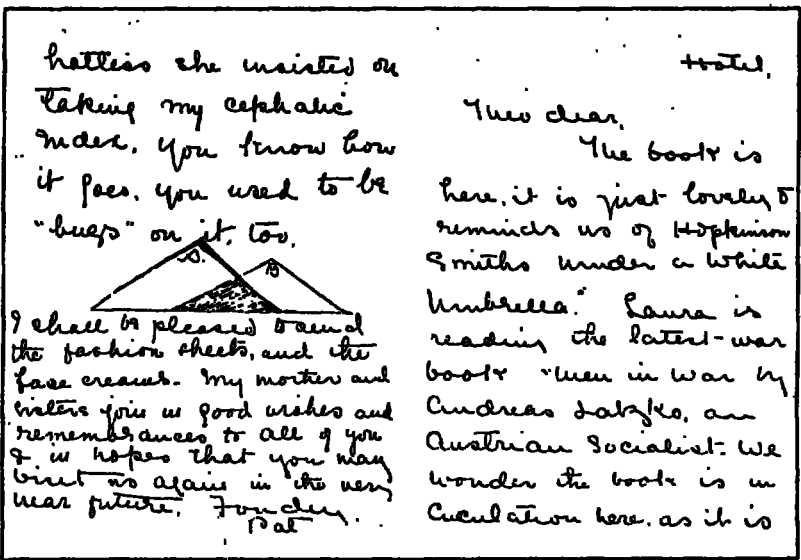 hatless she insisted on
taking my cephalic
index, you know how
it goes, you used to be
"bugs" on it, too.
A. B
I shall be pleased to send
the fashion sheets, and the
face creams. My mother and
sisters join in good wishes and
remembrances to all of you
& in hopes that you may
visit us again in the very
near future. Fondly,
Pat
Hotel,
Theo dear,
The book is
here, it is just lovely &
reminds us of Hopkinson
Smiths Under a White
Umbrella." Laura is
reading the latest war
book "Men in War by
Andreas Latzko, an
Austrian Socialist. We
wonder the book is in
circulation here, as it is